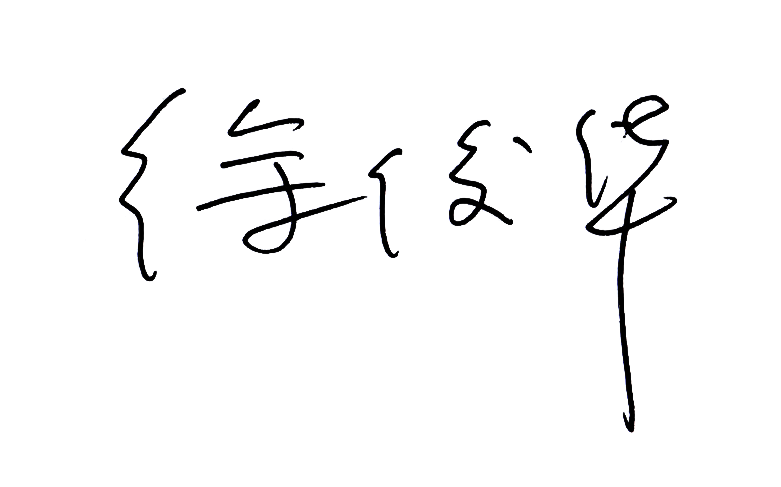 徐俊华